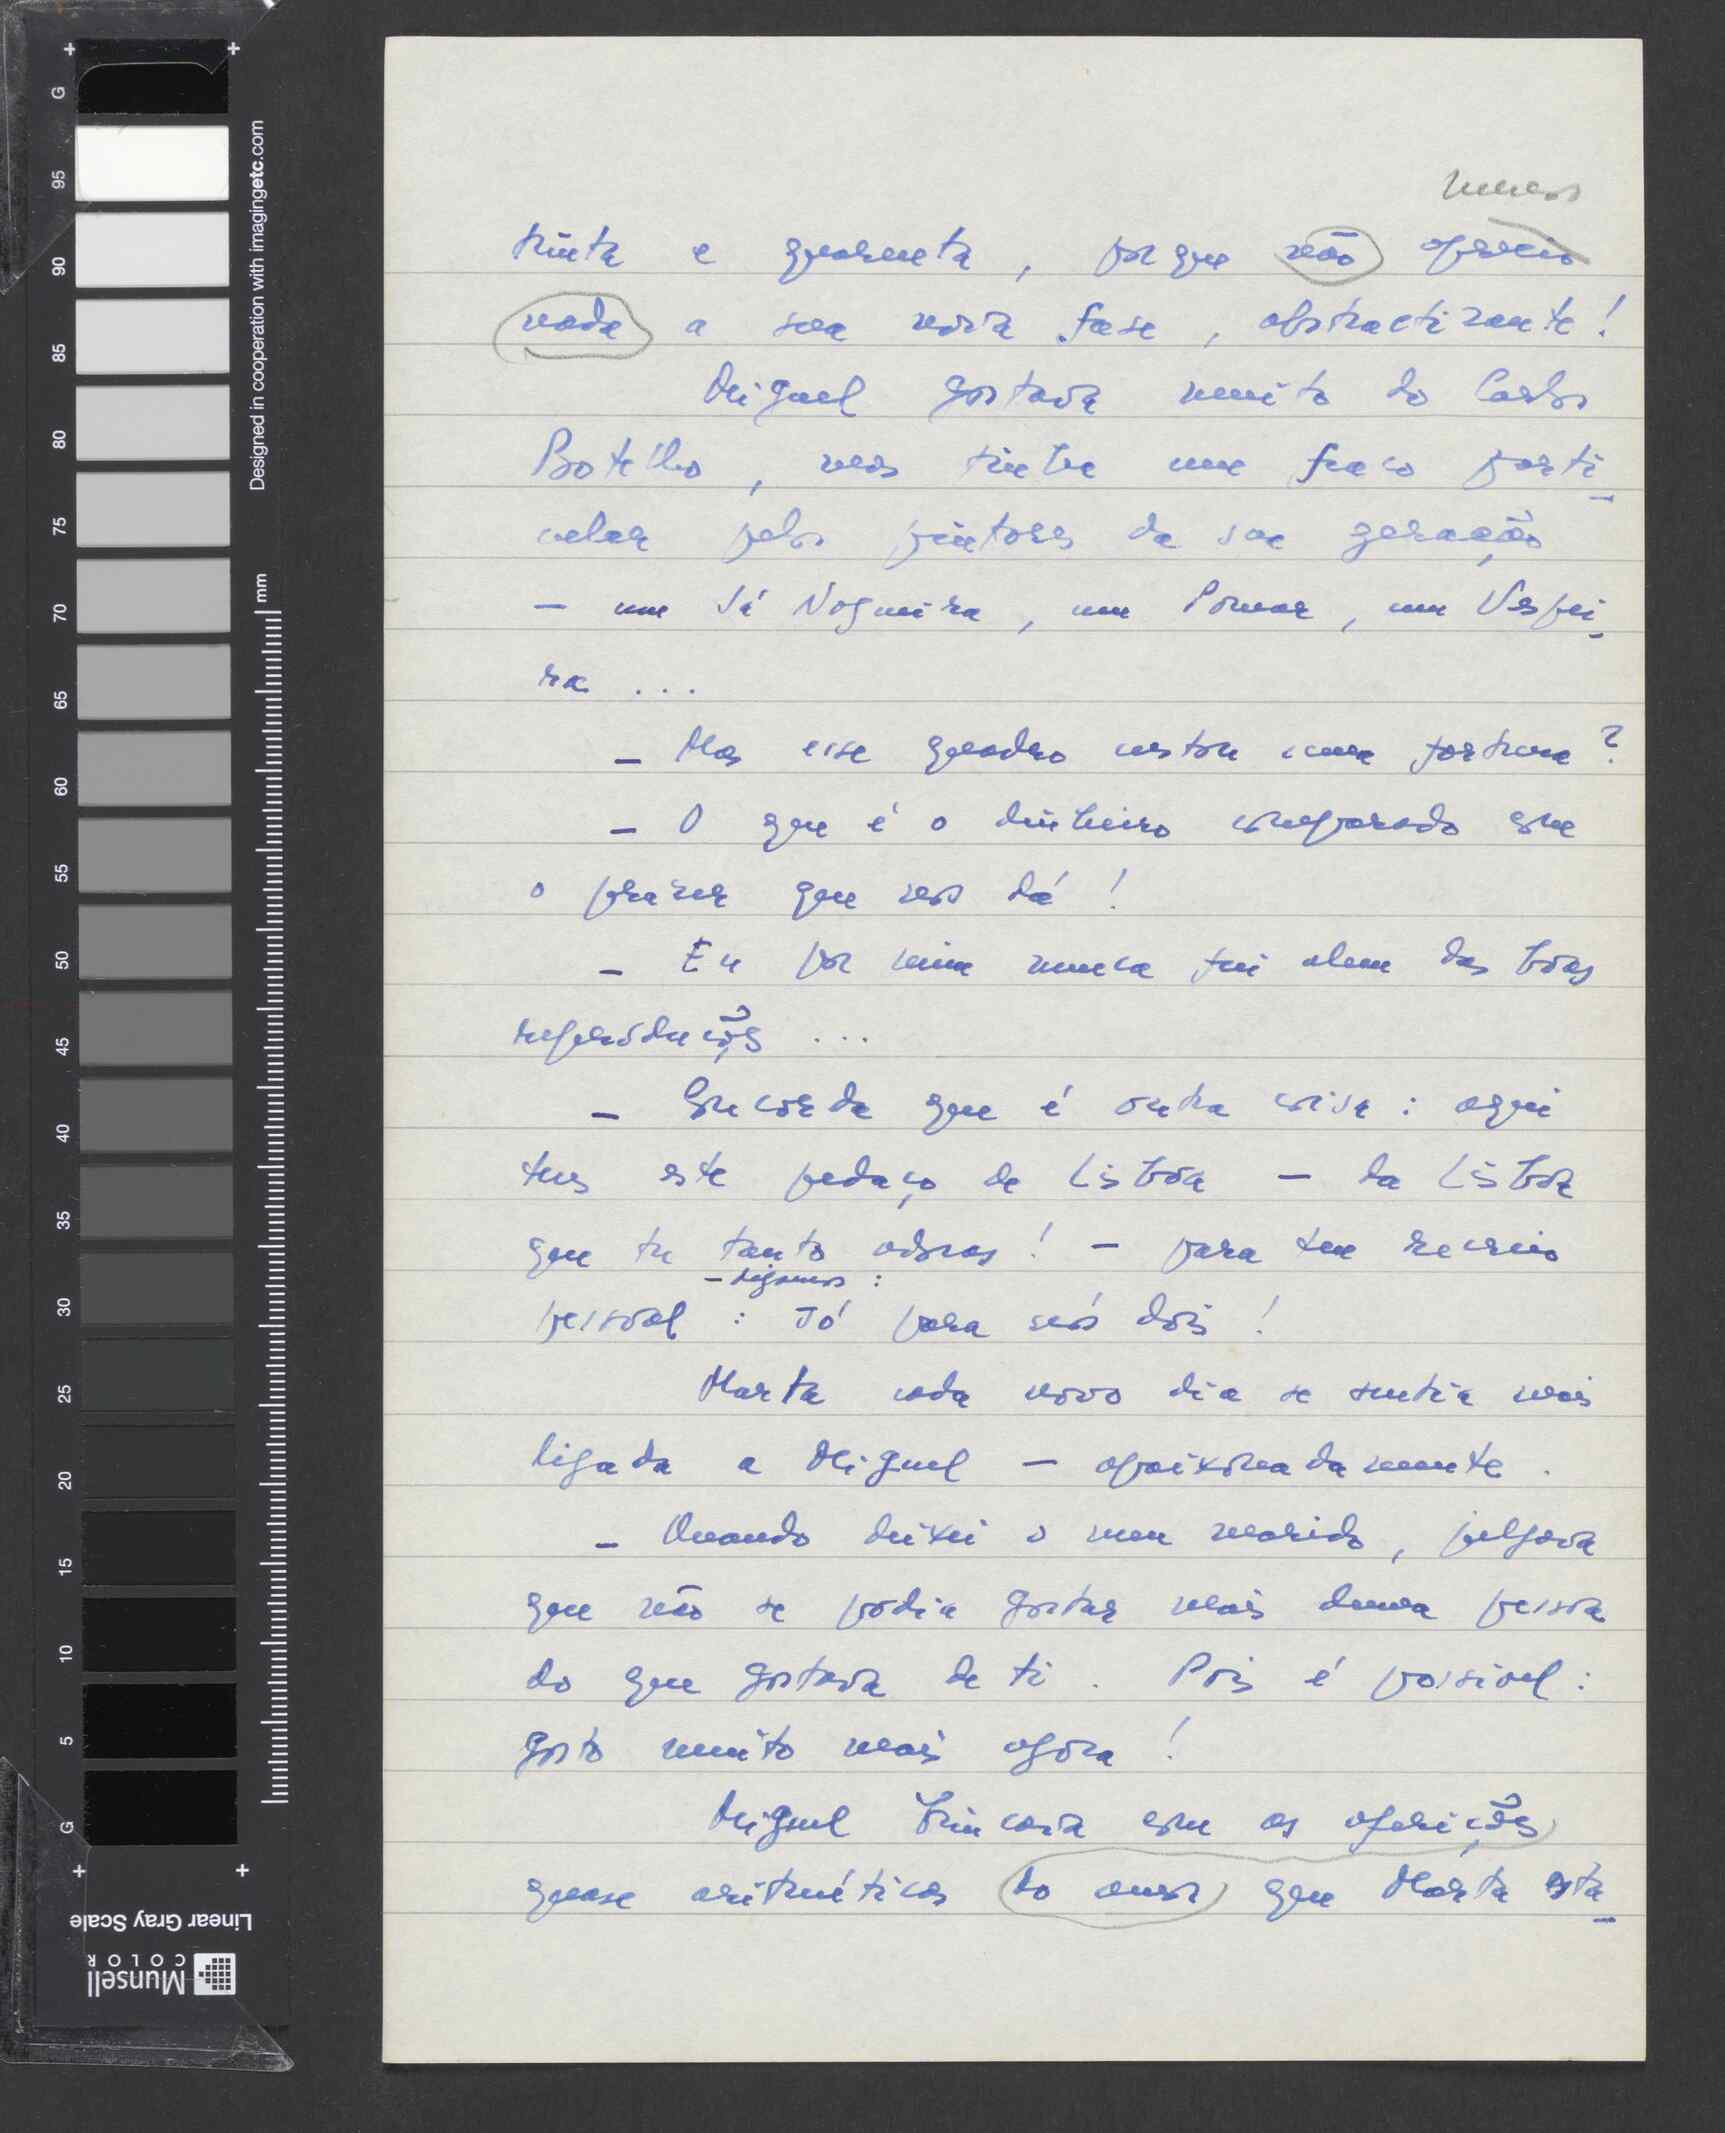 menos
trinta e quarenta, porque não aprecio
nada a sua nova fase, abstractizante!
Miguel gostava muito do Carlos
Botelho, mas tinha um fraco parti-
cular pelos pintores da sua geração
— um Sá Nogueira, um Pomar, um Vespei-
ra ...
— Mas esse quadro custou uma fortuna?
— O que é o dinheiro comparado com
o prazer que nos dá!
— Eu por mim nunca fui alem das boas
reproduções ...
— Concorda que é outra coisa: aqui
tens este pedaço de Lisboa — da Lisboa
que tu tanto adoras! — para teu recreio
— digamos:
pessoal: só para nós dois!
Marta cada novo dia se sentia mais
ligada a Miguel — apaixonadamente.
— Quando deixei o meu marido, julgava
que não se podia gostar mais duma pessoa
do que gostava de ti. Pois é possivel:
gosto muito mais agora!
Miguel brincava com as aferições
quase aritméticas do amor que Marta esta-
G
95
90
85
80
75
70
65
60
55
50
45
40
35
30
25
20
15
10
5
G
Designed in cooperation with imagingetc.com
mm
Linear Gray Scale
Munsell
COLOR